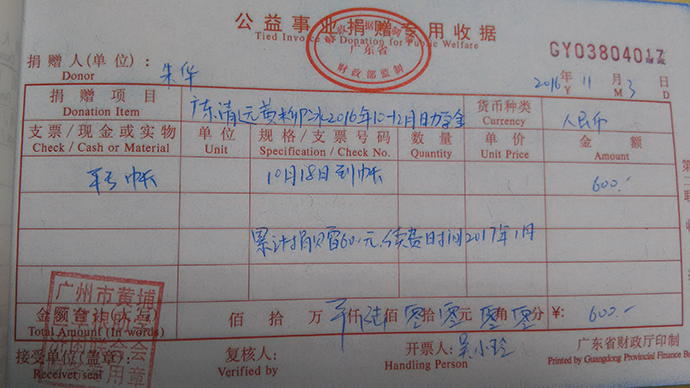 公益事业捐赠专用收据
Tied Invoice Donation for Public Welfare
广东省
财政部监制
GY03804017
捐赠人(单位): 朱华
Donor
2016年11月3日
Y M D
捐赠项目 广东清远黄柳冰2016年10-12月助学金 货币种类 人民币
Donation Item Currency
支票/现金或实物 单位 规格/支票号码 数量 单价 金额
Check / Cash or Material Unit Specification / Check No. Quantity Unit Price Amount
10月18日到帐 600.-
累计捐赠 元.续费时间2017年1月
金额合计(大写) 佰 拾 万 仟陆佰零拾零元零角零分 ¥: 600.-
Total Amount (In words)
广州市黄埔
接受单位(盖章): 复核人: 开票人: 吴小玲 广东省财政厅印制
Receiver, seal Verified by Handling Person Printed by Guangdong Provincial Finance
专用章
第二联